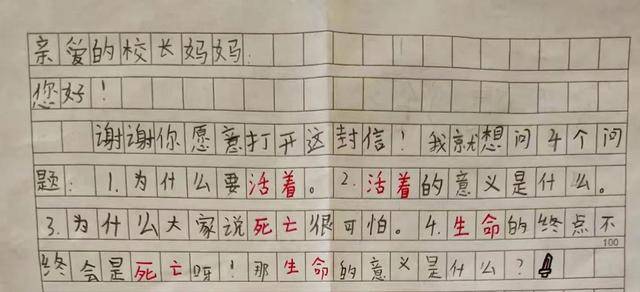 亲爱的校长妈妈:
您好!
谢谢你愿意打开这封信!我就想问4个问
题:1.为什么要活着。2.活着的意义是什么。
3.为什么大家说死亡很可怕。4.生命的终点不
100
终会是死亡呀!那生命的意义是什么?